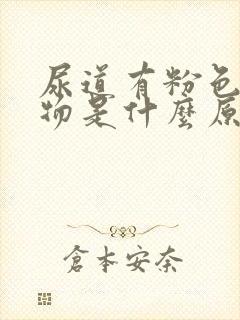 尿道有粉色
物是什麼原
倉本安奈